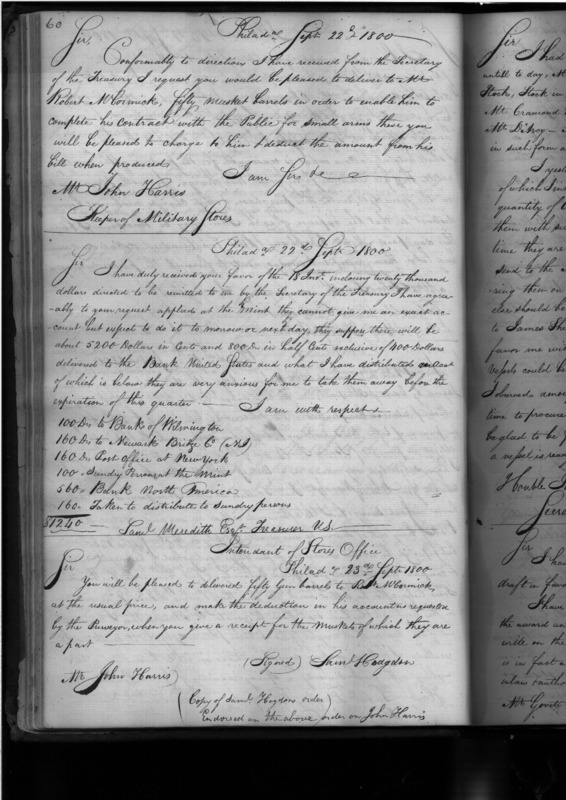 60
Philad.a Sept. 22d 1800
Sir,
Conformably to directions I have received from the Secretary
of the Treasury I request you would be pleased to deliver to Mr
Robert McCormick, fifty musket barrels in order to enable him to
complete his contract with the Public for small arms these you
will be pleased to charge to him & deduct the amount from his
bill when produced
I am Sir &c
Mr John Harris
Keeper of Military Stores
Philad.a 22d Sept. 1800
Sir
I have duly received your favor of the 18 Inst. inclosing twenty thousand
dollars directed to be remitted to me by the Secretary of the Treasury I have agree-
-ably to your request applied at the Mint they cannot give me an exact ac-
count but expect to do it to morrow or next day, they suppose there will be
about 5200 Dollars in Cents and 800 Ds in half Cents inclusive of 400 Dollars
delivered to the Bank United States and what I have distributed
of which is below they are very anxious for me to take them away before the
expiration of this quarter — I am with respect
100 Ds to Bank of Wilmington
160 Ds to Newark Bridge Co (NJ)
160 Ds Post Office at New York
100 - Sundry Persons at the Mint
560 - Bank North America
160 - Taken to distribute to Sundry persons
$1240
Saml Meredith Esqr. Treasurer US
Intendant of Stores Office
Philad.a 23d Sept. 1800
Sir
You will be pleased to delivered fifty Gun barrels to Robt. McCormick,
at the usual price, and make the deduction in his account as requested
by the Purveyor, when you give a receipt for the Muskets of which they are
a part
(Signed) Saml Hodgdon
Mr John Harris
(Copy of Saml. Hogdons order)
Endorsed on the above order on John Harris
Sir
I had
untill to day, M
Stock, Stock in
Mr Cramond
in such form a
of which I
quantity of
them with su
time they are
send to the
sing them on
else should be
to James
favor me wi
Vessels could
time to procure
be glad to be
a vessel is rea
Honble
Secre
Sir
I ha
draft in favo
I have
the award an
write on the
is in fact a